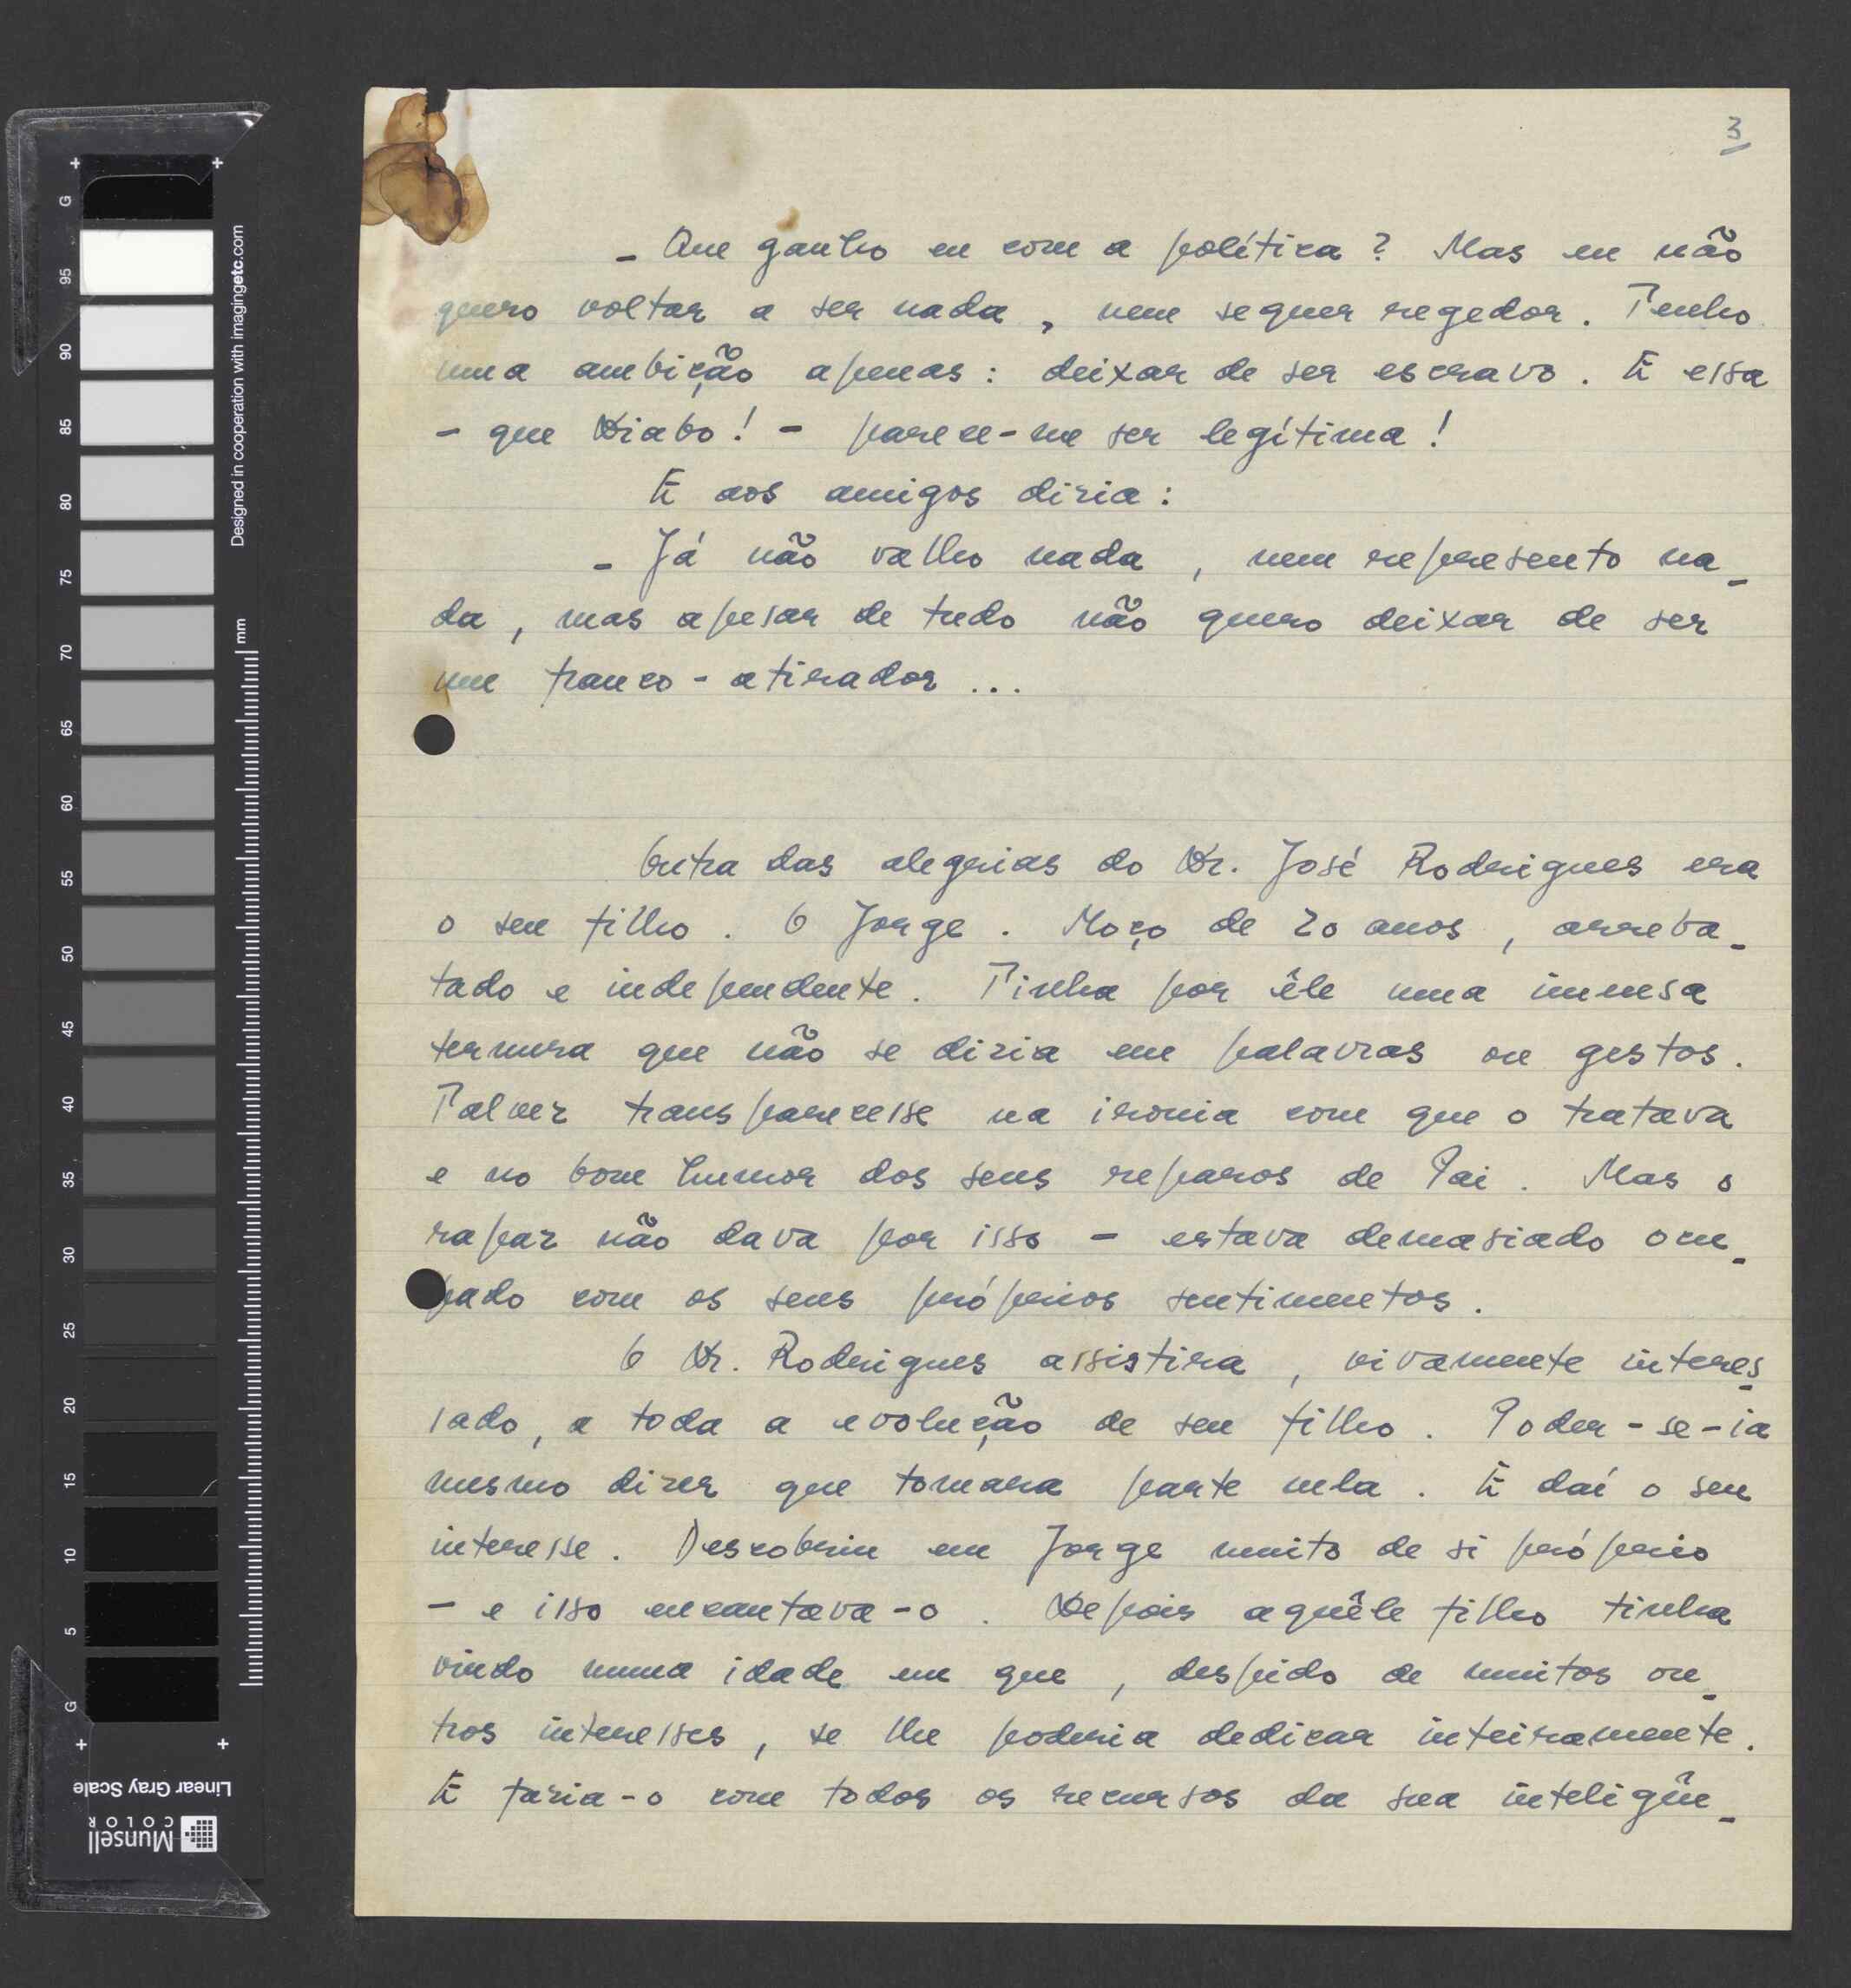 3
- Que ganho eu com a política? Mas eu não
quero voltar a ser nada, nem sequer regedor. Tenho
uma ambição apenas: deixar de ser escravo. E essa
- que Diabo! - parece-me ser legítima!
E aos amigos dizia:
- Já não valho nada, nem represento na-
da, mas apesar de tudo não quero deixar de ser
um franco-atirador...
Outra das alegrias do Dr. José Rodrigues era
o seu filho. O Jorge. Moço de 20 anos, arreba-
tado e independente. Tinha por êle uma imensa
ternura que não se dizia em palavras ou gestos.
Talvez transparecesse na ironia com que o tratava
e no bom humor dos seus reparos de Pai. Mas o
rapaz não dava por isso - estava demasiado ocu-
pado com os seus próprios sentimentos.
O Dr. Rodrigues assistira, vivamente interes-
sado, a toda a evolução de seu filho. Poder-se-ia
mesmo dizer que tomara parte nela. E daí o seu
interesse. Descobriu em Jorge muito de si próprio
- e isso encantava-o. Depois aquêle filho tinha
vindo numa idade em que, despido de muitos ou-
tros interesses, se lhe poderia dedicar inteiramente.
E fazia-o com todos os recursos da sua inteligên-
G
95
90
85
80
75
70
65
60
55
50
45
40
35
30
25
20
15
10
5
G
mm
Designed in cooperation with imagingetc.com
Linear Gray Scale
Munsell
COLOR